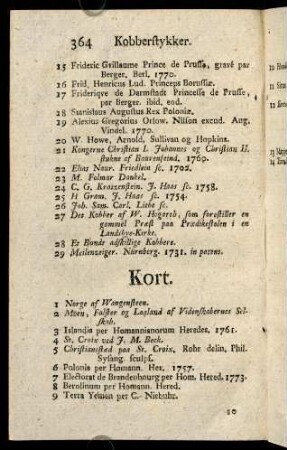 364 Kobberstykker.
15 Frideric Gvillaume Prince de Prusse, gravé par
Berger, Berl. 1770.
16 Frid. Henricus Lud. Princeps Borussiæ.
17 Friderique de Darmstadt Princesse de Prusse,
per Berger. ibid. eod.
18 Stanislaus Augustus Rex Poloniæ.
19 Alexius Gregorius Orlow. Nilson excud. Aug.
Vindel. 1770.
20 W. Howe, Arnold, Sullivan og Hopkins.
21 Kongerne Christian I. Johannes og Christian II.
stukne af Baurenfeind, 1760.
22 Elias Naur. Friedlein sc. 1702.
23 M. Folmar Danbel.
24 C. G. Kratzenstein. J. Haas sc. 1758.
25 H Gram. J. Haas sc. 1754.
26 Joh. Sam. Carl, Lüde sc.
27 Det Kobber af W. Hogarth, som forestiller en
gammel Præst paa Prædikestolen i en
Landsbye-Kirke.
28 Et Bundt adskillige Kobbere.
29 Meilenzeiger. Nürnberg. 1731. in patens.
Kort.
1 Norge af Wangensteen.
2 Moen, Falster og Laaland af Videnskabernes Sel-
skab.
3 Islandia per Homannianorum Heredes, 1761.
4 St. Croix ved J. M. Beck.
5 Christianstad paa St. Croix, Rohr delin. Phil.
Sysang. sculps.
6 Polonia per Homann. Her. 1757.
7 Electorat de Brandenbourg per Hom. Hered. 1773.
8 Berolinum per Homann. Hered.
9 Terra Yemen per C. Niebuhr.
10